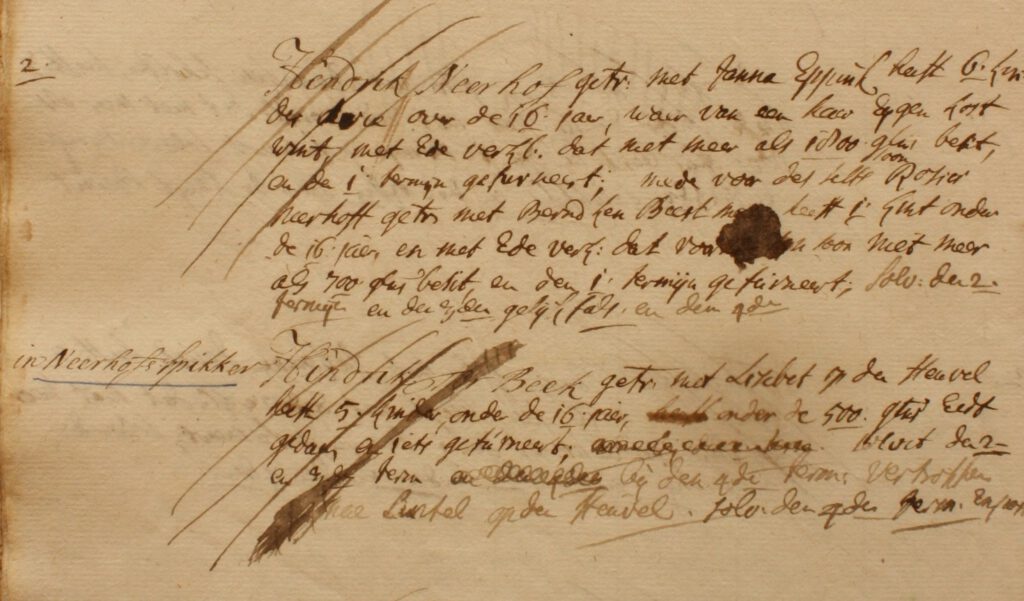 2.
Hindrik Neerhof getr: met Janna Eppink heeft 6. kin
der over de 16. jaar, waar van een haar Eygen kost
wint, met Ede verkl: dat niet meer als 1800. glns besit,
en de 1. termijn gefurneert; mede voor des selfs soon Rosier
neerhoff getr. met Berndken Beest heeft 1: kint onder
de 16. jaer, en met Ede verk: dat voor soon niet meer
als 700 glns besit, en den 1. termijn gefurneert; solv: den 2-
termijn en den 3den gelijk fals. en den 4den
in Neerhof spikker
Hindrik ter Beek getr. met Lisebet op den Heuvel
heeft 5. kinder, onder de 16. jair, onder de 500. glns Eedt
gedan, en iets gefurneert, solvit den 2-
en 3den term bij den 4den term: vertrokken
op den Heuvel. solv. den 4den term.